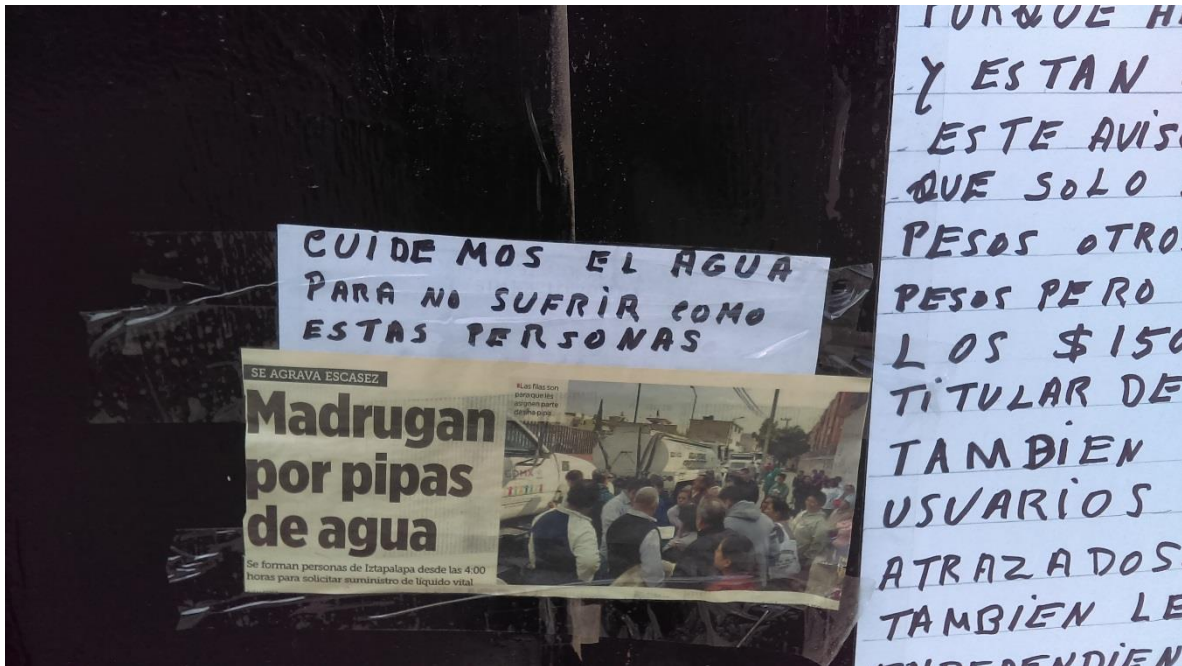 CUIDEMOS EL AGUA
PARA NO SUFRIR COMO
ESTAS PERSONAS
SE AGRAVA ESCASEZ
Madrugan
por pipas
de agua
Se forman personas de Iztapalapa desde las 4:00
horas para solicitar suministro de líquido vital
Las filas son
para que les
asignen parte
de una pipa
CDMX
Y ESTAN
ESTE AVISO
QUE SOLO
PESOS OTROS
PESOS PERO
LOS $150
TITULAR DE
TAMBIEN
USUARIOS
ATRAZADOS
TAMBIEN LE